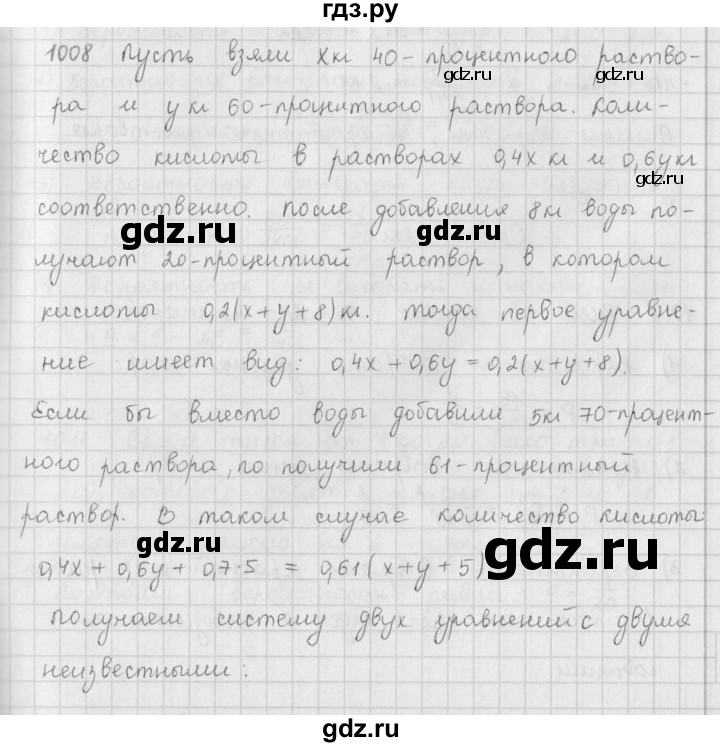 гдз.ру
1008 Пусть взяли x кг 40-процентного раство-
gdz.ru
gdz.ru
ра и y кг 60-процентного раствора. Коли-
чество кислоты в растворах 0,4x кг и 0,6y кг
gdz.ru
соответственно. После добавления 8 кг воды по-
gdz.ru
gdz.ru
лучают 20-процентный раствор, в котором
кислоты 0,2(x+y+8) кг. Тогда первое уравне-
gdz.ru
gdz.ru
ние имеет вид: 0,4x + 0,6y = 0,2(x+y+8).
Если бы вместо воды добавили 5 кг 70-процент-
ного раствора, то получили 61-процентный
раствор. В таком случае количество кислоты:
gdz.ru
gdz.ru
0,4x + 0,6y + 0,7·5 = 0,61(x+y+5)
Получаем систему двух уравнений с двумя
неизвестными:
gdz.ru
gdz.ru
gdz.ru